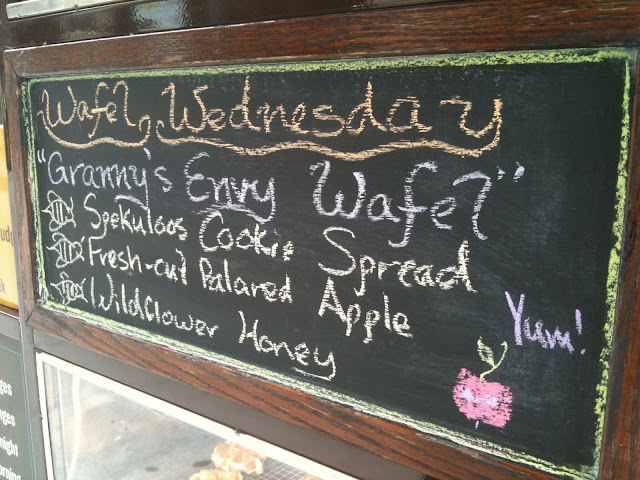 Wafel Wednesday
"Granny's Envy Wafel"
Spekuloos Cookie Spread
Fresh-cut Palared Apple
Wildflower Honey
Yum!